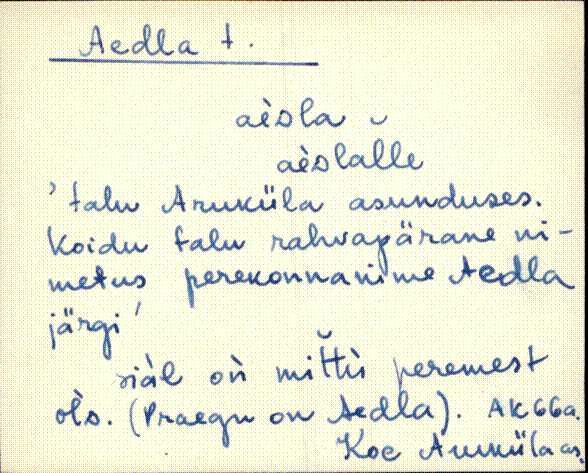 Aedla t.
aèdla ᴗ
aèdlalle
'talu Aruküla asunduses.
Koidu talu rahvapärane ni-
metus perekonnanime Aedla
järgi'
siàl oǹ mìttù peremest
ol̀s. (Praegu on Aedla). AK 66a.
Koe Aruküla as.